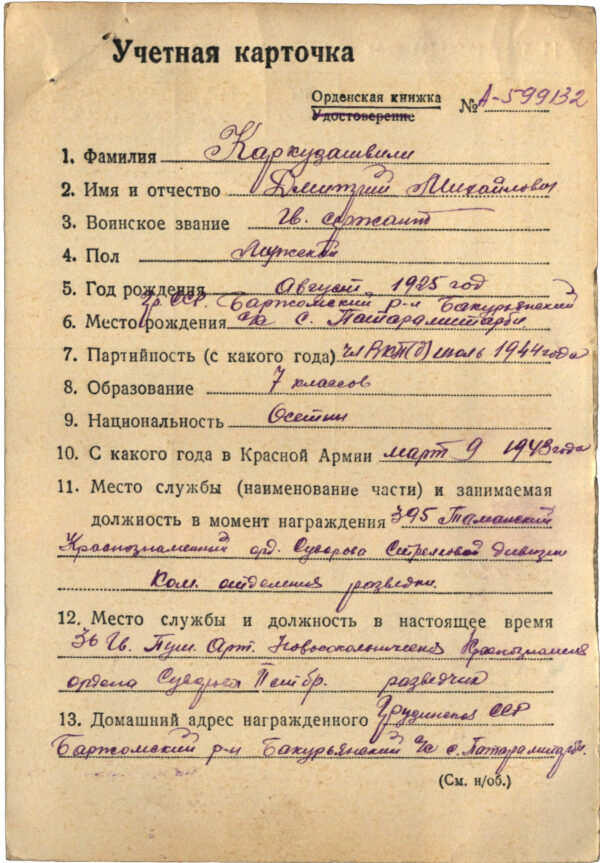 Учетная карточка
Орденская книжка
Удостоверение
№ А-599132
1. Фамилия Каркудашвили
2. Имя и отчество Дмитрий Михайлович
3. Воинское звание Гв. сержант
4. Пол Мужской
5. Год рождения Август 1925 год
Гр. ССР. Баржомский р-н Бакурьянский
6. Место рождения с/с с. Патарамитарби
7. Партийность (с какого года) чл ВКП(б) июль 1944 года
8. Образование 7 классов
9. Национальность Осетин
10. С какого года в Красной Армии март 9 1943 года
11. Место службы (наименование части) и занимаемая
должность в момент награждения 395 Таманский
Краснознаменный орд. Суворова Стрелковой дивизии
Ком. отделения розведки.
12. Место службы и должность в настоящее время
36 Гв. Пуш. Арт. Краснознамен
ордена Суворова розведчик
13. Домашний адрес награжденного Грузинская ССР
Баржомский р-н Бакурьянский с/с с.
(См. н/об.)